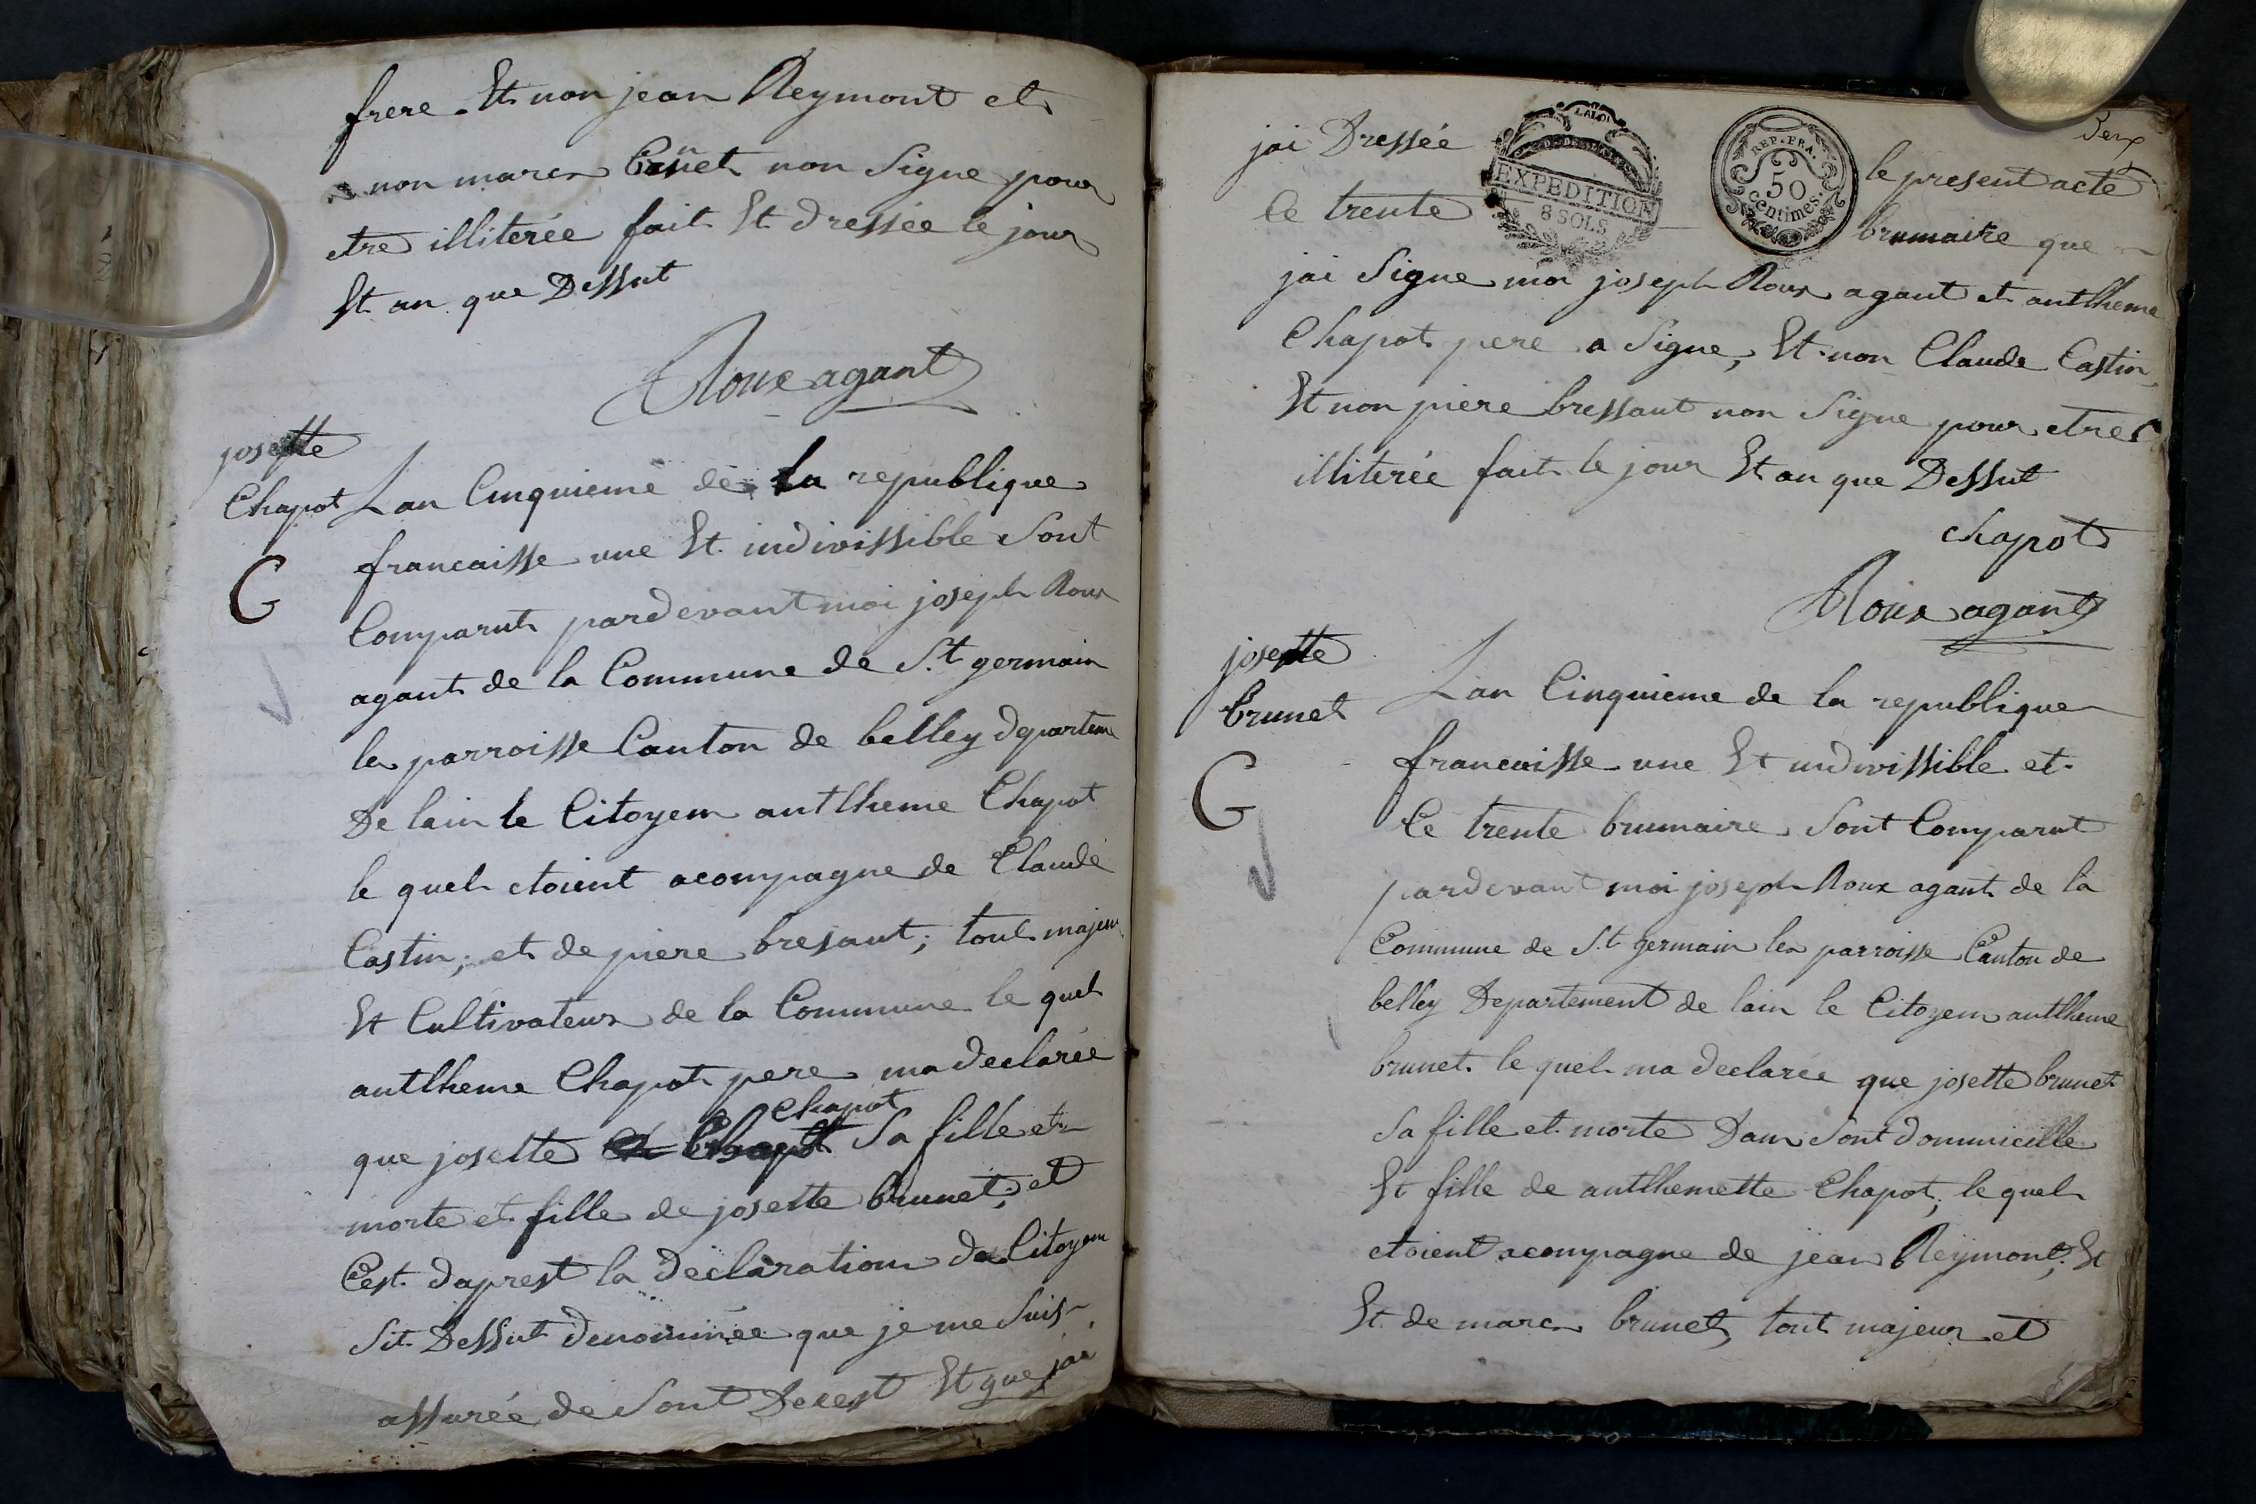 frere Et non jean Reymont et
non marc Brunet non Signe pour
etre illiterée fait Et dressée le jour
Et an que Dessut
Roux agant
josette
Chapot
G
Lan Cinquieme de la republique
francaisse une Et indivissible Sont
Comparut pardevant moi joseph Roux
agant de la Commune de S.t germain
les parroisse Canton de belley departem
De lain le Citoyem antlheme Chapot
le quel etoient acompagne de Claude
Castin; et de piere bresant; tout majeur
Et Cultivateur de la Commune le quel
antlheme Chapot pere ma declarée
chapot
que josette Sa fille et
morte et fille de josette brunet; et
Cest daprest la declaration du Citoyem
Sit Dessut denominée que je me Suis
assurée de Sont Decest Et que jai
Deux
jai Dressée le present acte
LA LOI
EXPEDITION
8 SOLS
REP. FRA.
50
centimes.
le trente brumaire que
jai Signe moi joseph Roux agant et antlheme
Chapot pere a Signe, Et non Claude Castin
Et non piere bressant non Signe pour etre
illiterée fait le jour Et an que Dessut
chapot
Roux agant
josette
brunet
G
Lan Cinquieme de la republique
francaisse une Et indivissible et
le trente brumaire Sont Comparut
pardevant moi joseph Roux agant de la
Commune de S.t germain les parroisse Canton de
belley Departement de lain le Citoyem antlheme
brunet le quel ma declarée que josette brunet
Sa fille et morte Dans Sont dommicille
Et fille de antlhemette Chapot; le quel
etoient acompagne de jean Reymont; Et
Et de marc brunet, tout majeur et